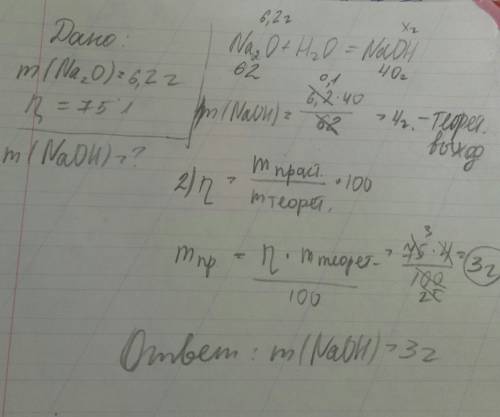 Дано:
m(Na2O)=6,2 г
η = 75%
m(NaOH)=?
6,2 г xг
Na2O+H2O=NaOH
62 40г
0,1
m(NaOH) = 6,2·40 / 62 = 4г. - теорет.
выход
2) η = mпракт. / mтеорет. ·100
3
mпр = η · mтеорет. / 100 = 75·4 / 100 = 3г
25
Ответ: m(NaOH)=3г